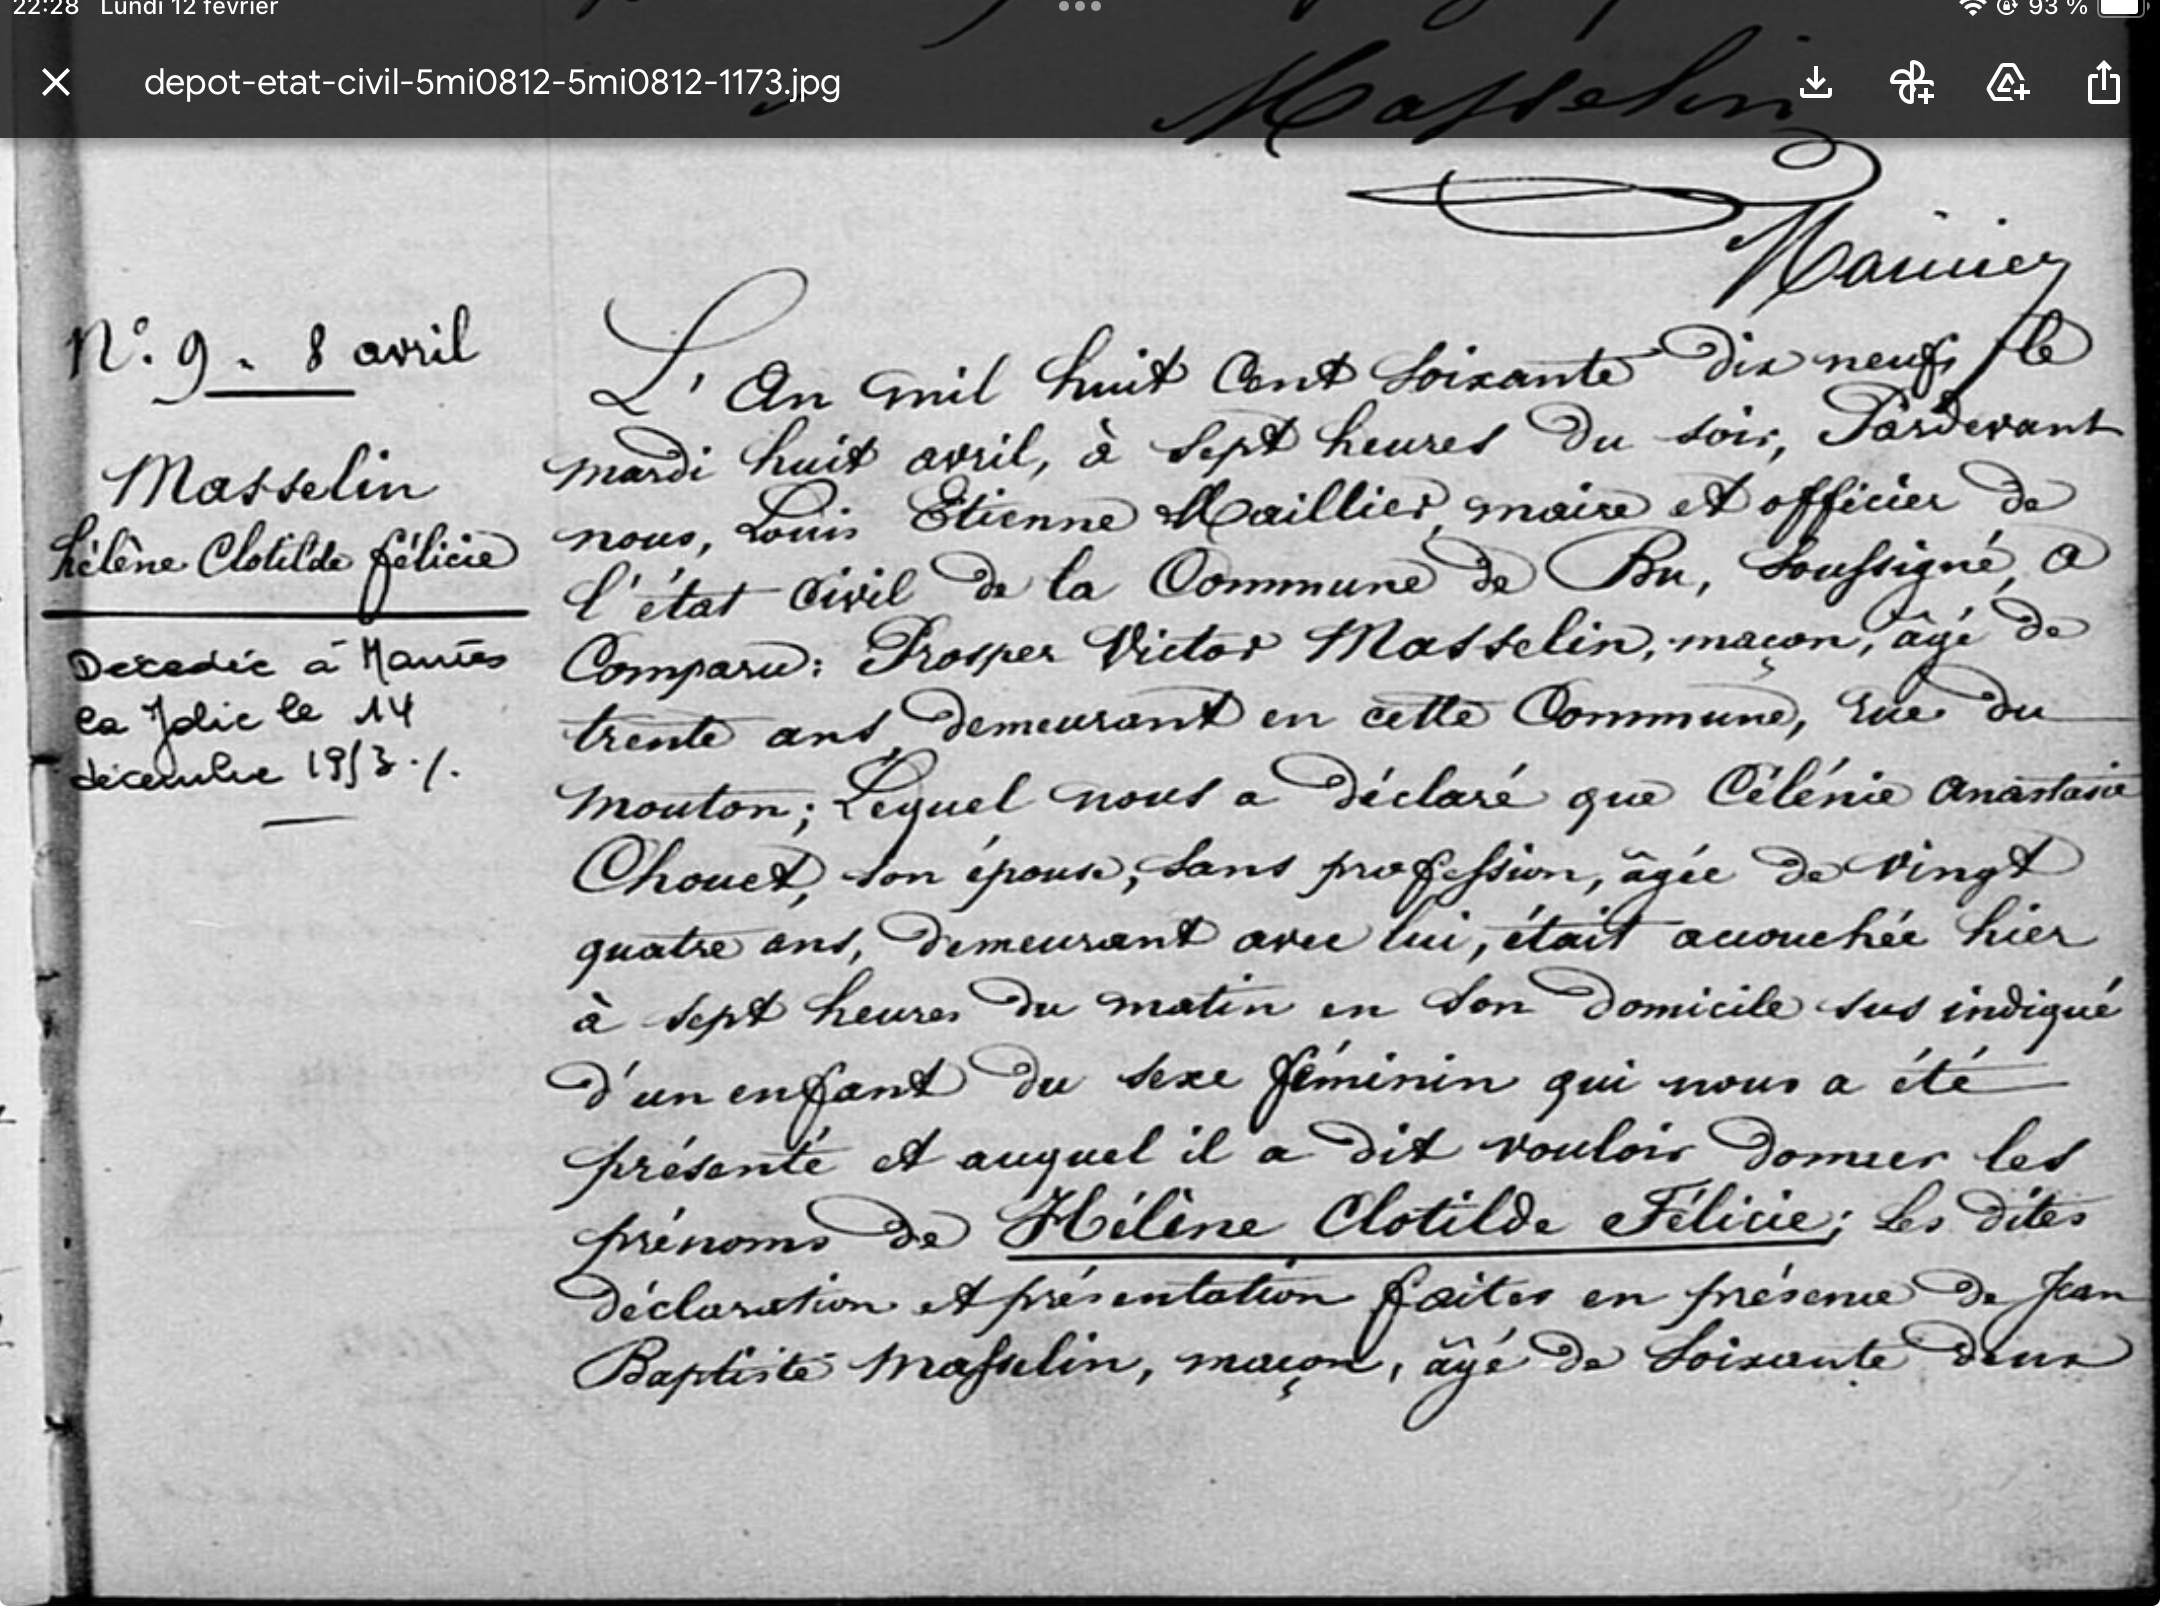 22:28 Lundi 12 février
93 %
depot-etat-civil-5mi0812-5mi0812-1173.jpg
Masselin
N°. 9 - 8 avril
Masselin
hélène Clotilde félicie
Décédée à Mantes
la Jolie le 14
décembre 1953 ./.
L'An mil huit Cent soixante dix neuf, le
mardi huit avril, à sept heures du soir, Pardevant
nous, Louis Etienne Maillier, maire et officier de
l'état civil de la Commune de Bu, soussigné, a
Comparu: Prosper Victor Masselin, maçon, âgé de
trente ans, demeurant en cette Commune, rue du
mouton; Lequel nous a déclaré que Célénie anastasie
Chouet, son épouse, sans profession, âgée de vingt
quatre ans, demeurant avec lui, était accouchée hier
à sept heures du matin en son domicile sus indiqué
d'un enfant du sexe féminin qui nous a été
présenté et auquel il a dit vouloir donner les
prénoms de Hélène Clotilde Félicie; Les dites
déclaration et présentation faites en présence de Jean
Baptiste Masselin, maçon, âgé de soixante deux